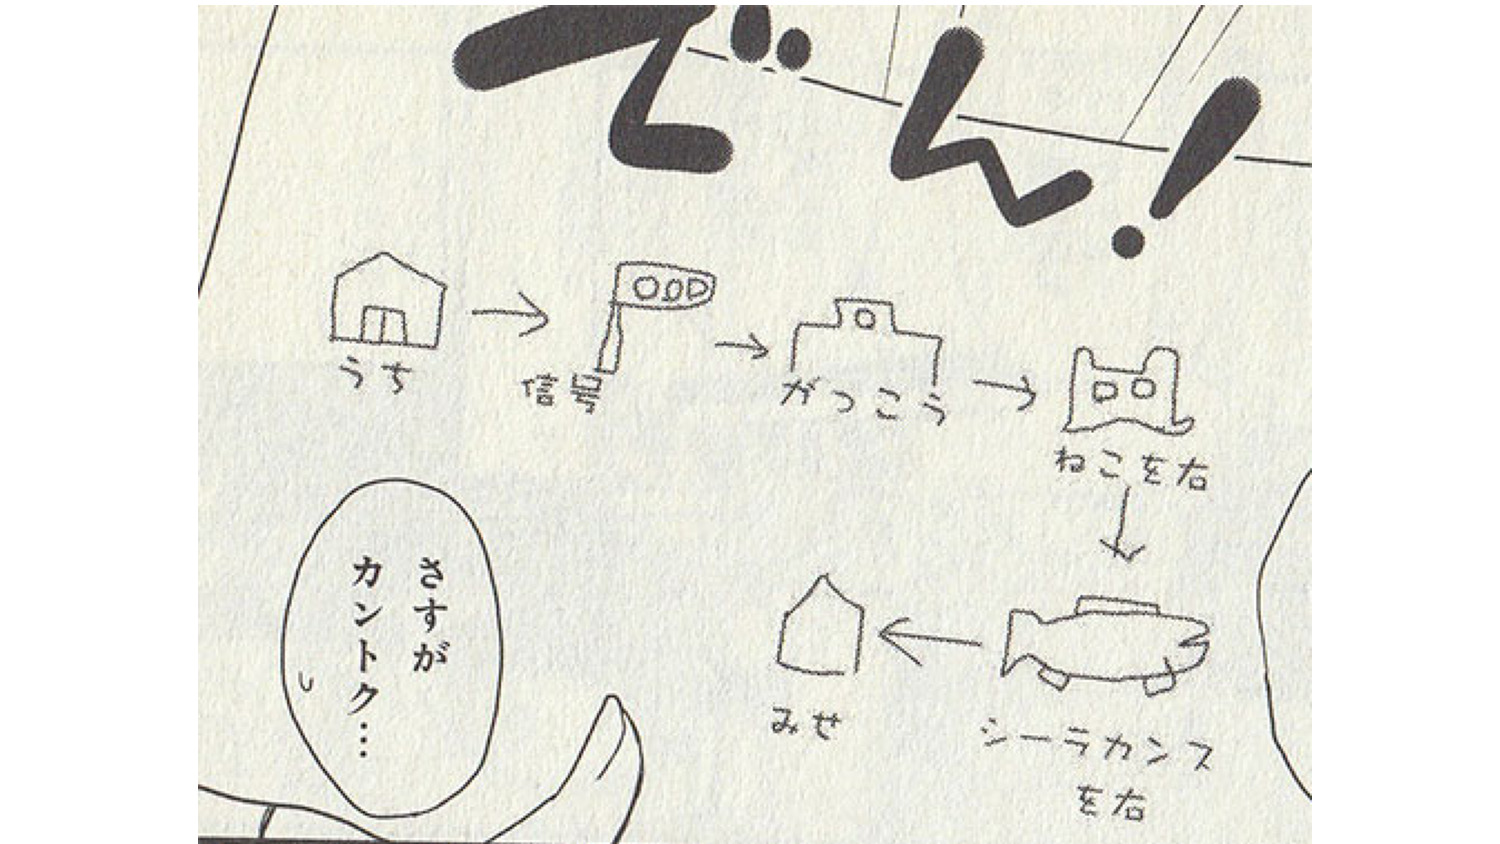 でん!
うち
信号
がっこう
ねこを右
シーラカンス
を右
みせ
さすが
カントク…